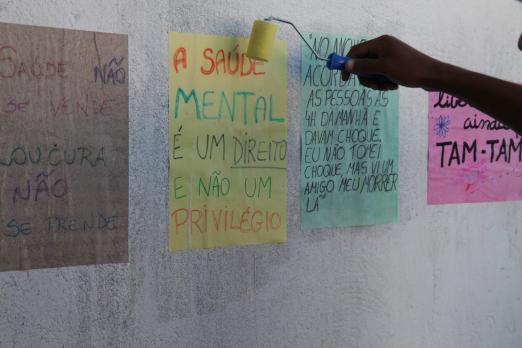 SAÚDE NÃO
SE VENDE
LOUCURA
NÃO
SE PRENDE
A SAÚDE
MENTAL
É UM DIREITO
E NÃO UM
PRIVILÉGIO
"NO
ACORDA
AS PESSOAS ÀS
4H DA MANHÃ E
DAVAM CHOQUE.
EU NÃO TOMEI
CHOQUE, MAS VI UM
AMIGO MEU MORRER
LÁ"
ainda
TAM-TAM